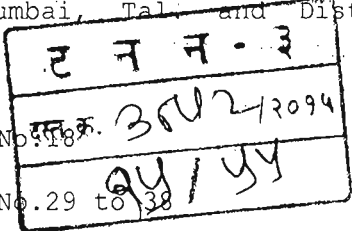 umbai, Tal. and Dist
ट न न - ३
दस्त क्र. / २०१५
No.18
१५ / ५५
No.29 to 38